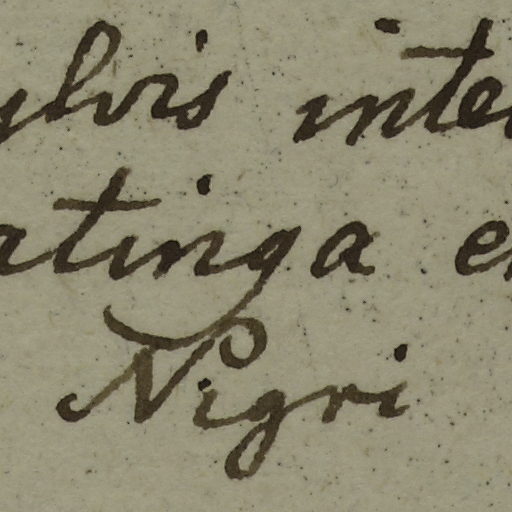 ylvis inter
atinga e
Nigri